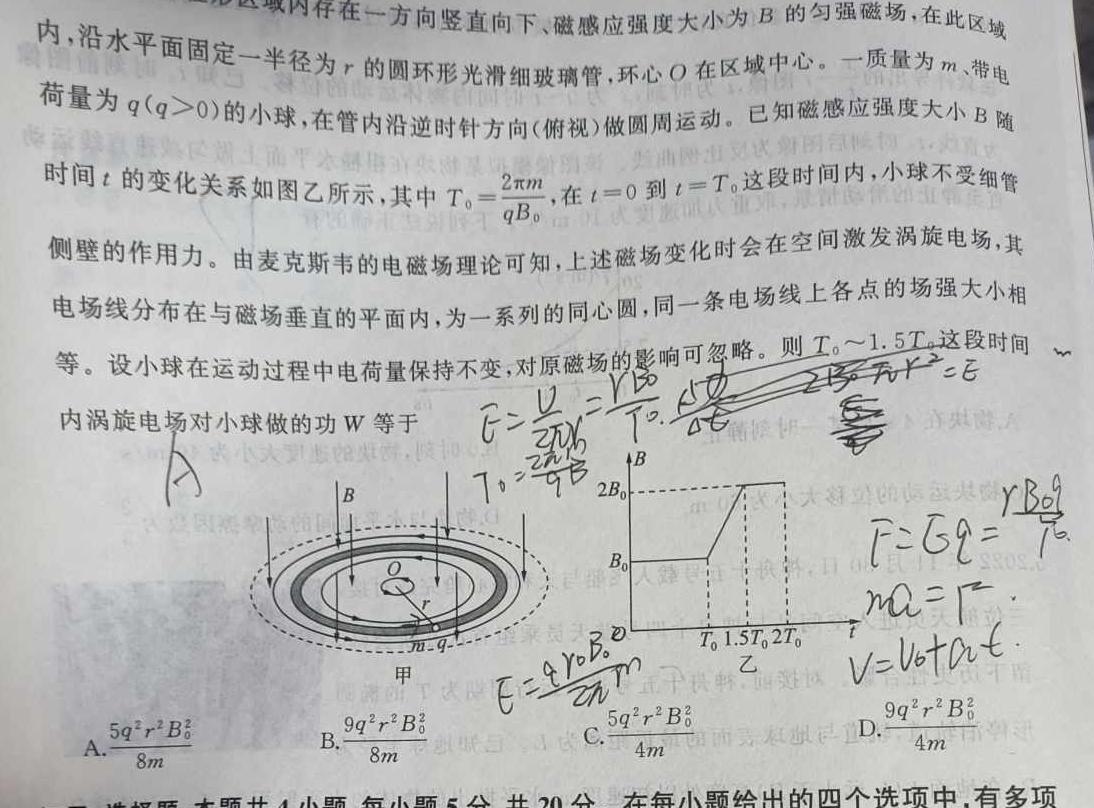 区域内存在一方向竖直向下、磁感应强度大小为 B 的匀强磁场,在此区域
内,沿水平面固定一半径为 r 的圆环形光滑细玻璃管,环心 O 在区域中心。一质量为 m、带电
荷量为 q(q>0)的小球,在管内沿逆时针方向(俯视)做圆周运动。已知磁感应强度大小 B 随
时间 t 的变化关系如图乙所示,其中 T₀=2πm/qB₀,在 t=0 到 t=T₀这段时间内,小球不受细管
侧壁的作用力。由麦克斯韦的电磁场理论可知,上述磁场变化时会在空间激发涡旋电场,其
电场线分布在与磁场垂直的平面内,为一系列的同心圆,同一条电场线上各点的场强大小相
等。设小球在运动过程中电荷量保持不变,对原磁场的影响可忽略。则 T₀~1.5T₀这段时间
内涡旋电场对小球做的功 W 等于
E=U/2πr=rB₀/T₀.
=E
A
B
O
r
m q
甲
B
2B₀
B₀
O
T₀ 1.5T₀ 2T₀ t
乙
F=Eq=rB₀q/T₀.
ma=F.
V=V₀+at.
A. 5q²r²B₀²/8m
B. 9q²r²B₀²/8m
C. 5q²r²B₀²/4m
D. 9q²r²B₀²/4m
选择题:本题共4小题,每小题5分,共20分。在每小题给出的四个选项中,有多项